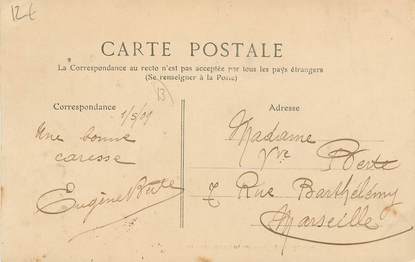 12 €
CARTE POSTALE
La Correspondance au recto n'est pas acceptée par tous les pays étrangers
(Se renseigner à la Poste)
Correspondance
1/5/09
13
Une bonne
caresse
Eugène Berte
Adresse
Madame
Vve Berte
7 Rue Barthélémy
Marseille